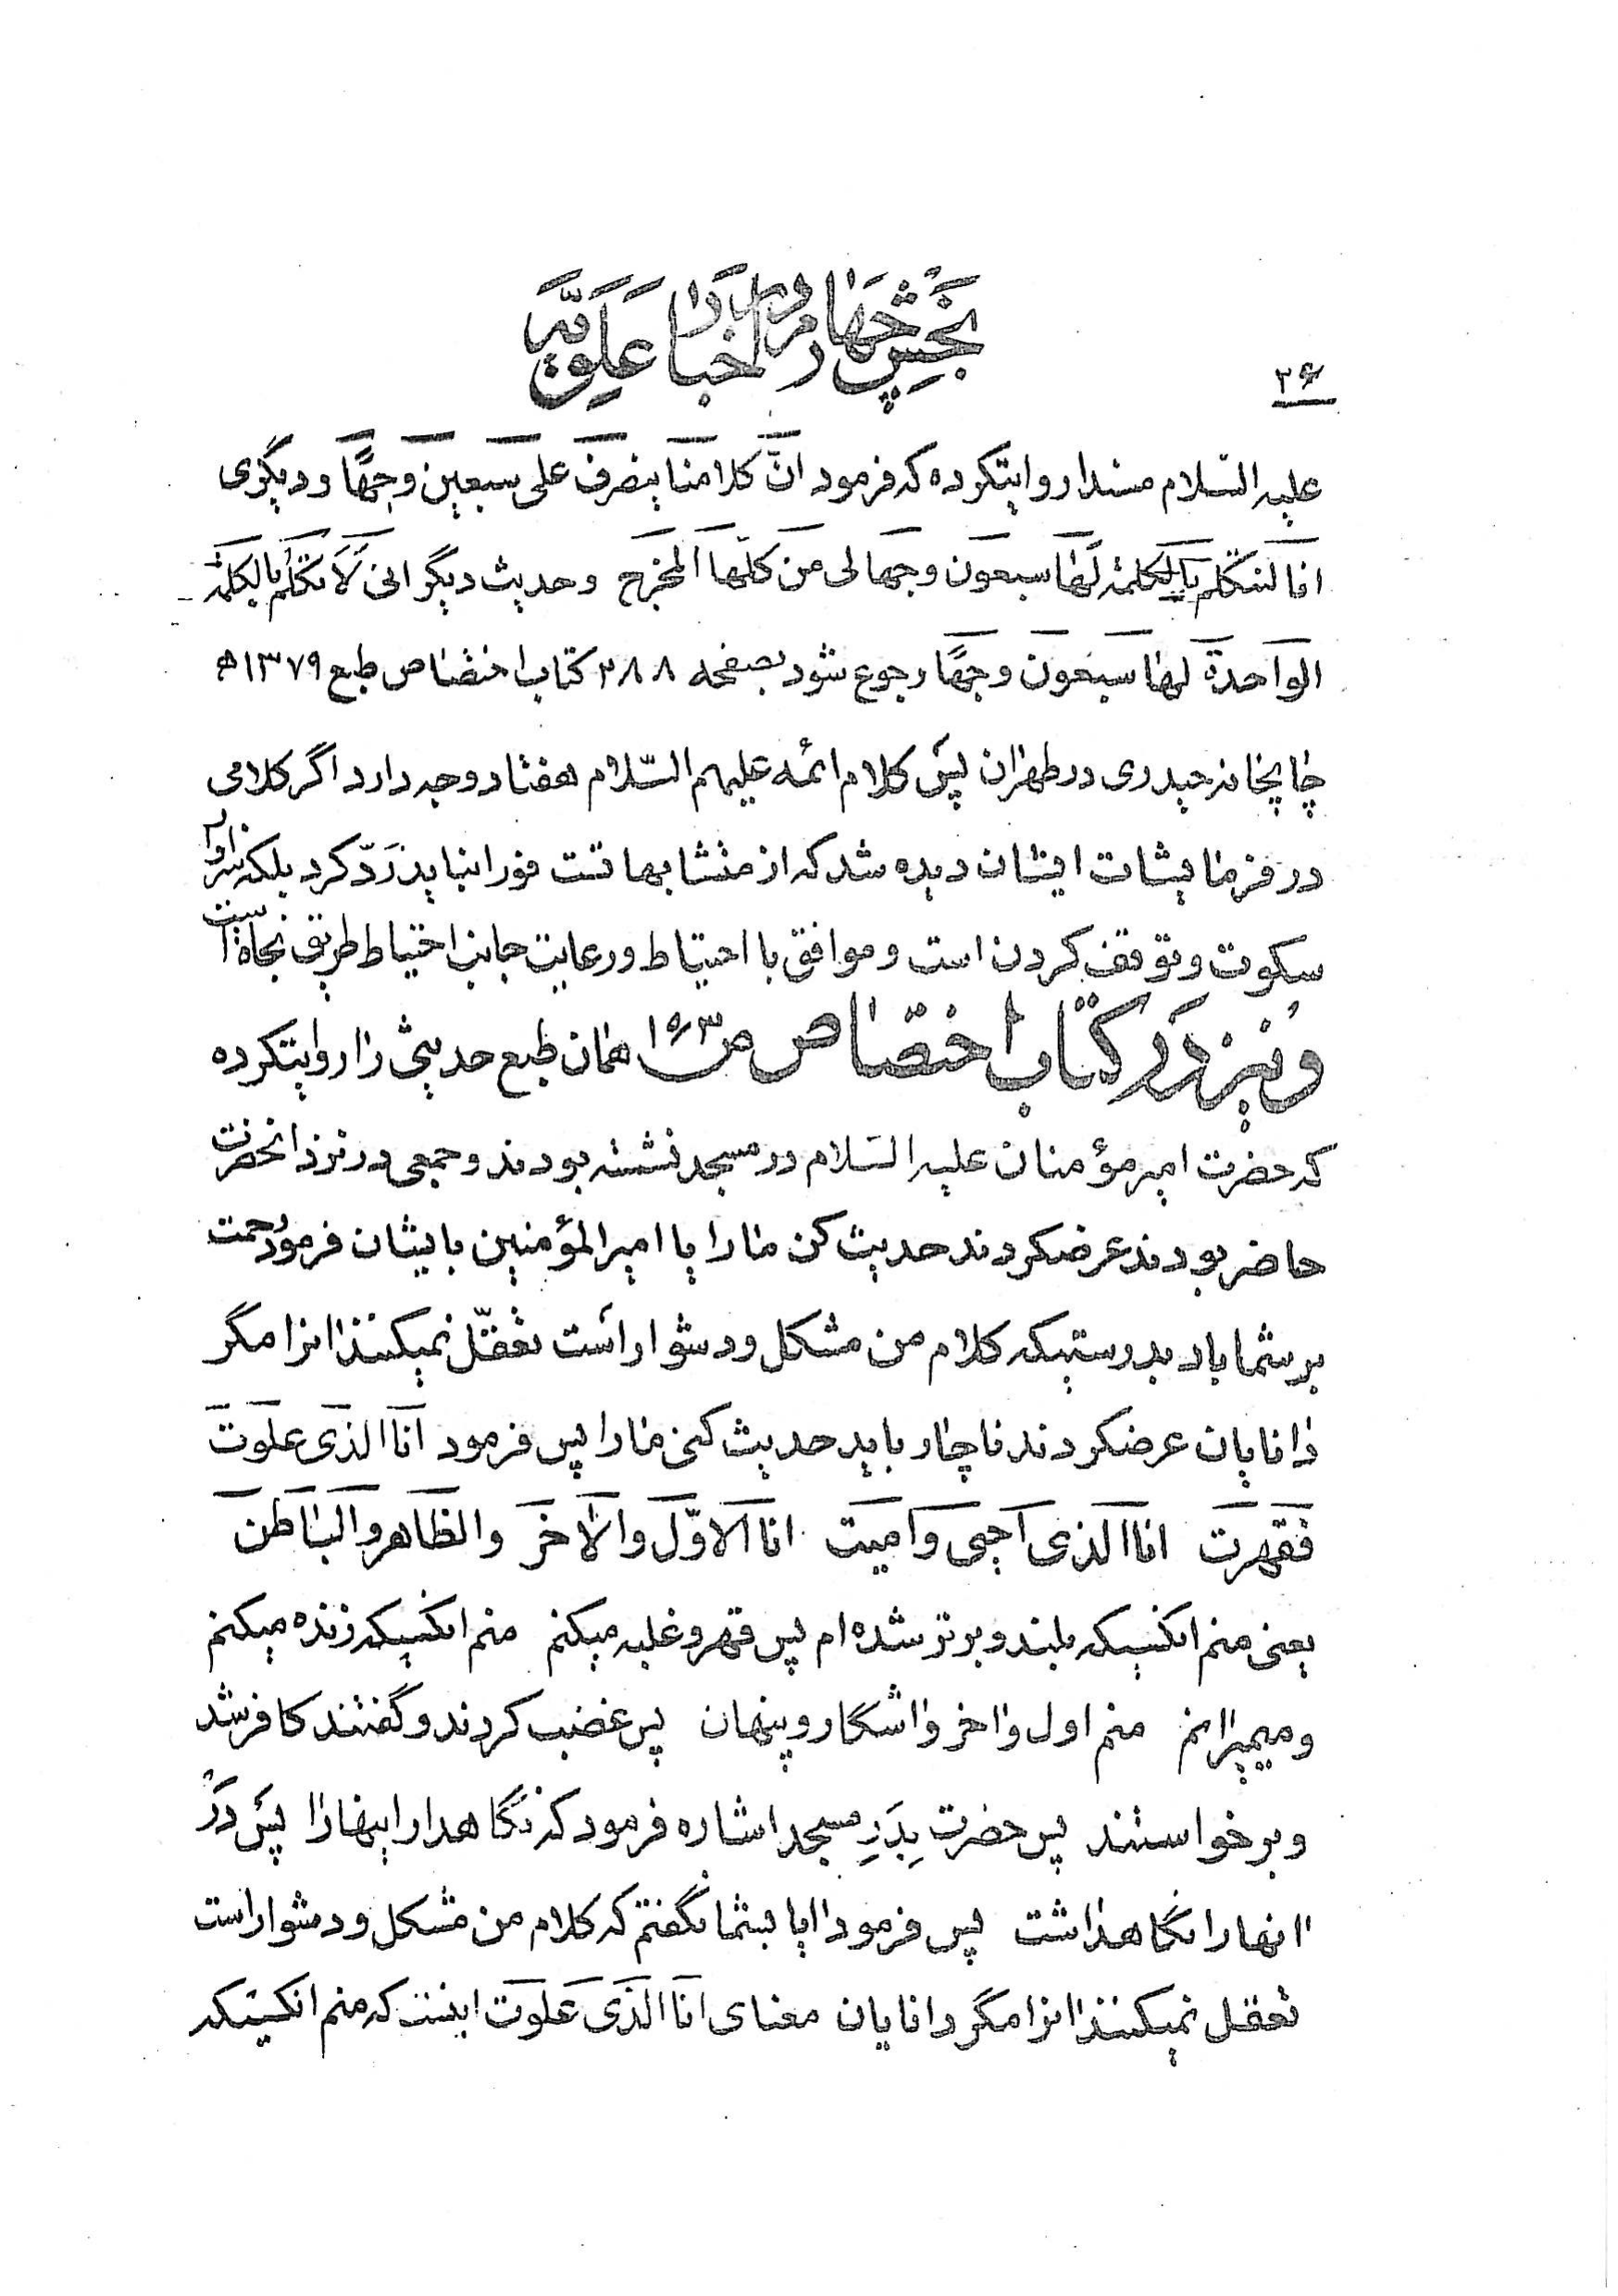 بخش چهارم در اخبار علویّه
۲۶
علیه السّلام مسندا روایتکرده که فرمود انّ کلامنا ینصرف علی سبعین وجهًا و دیگری
انا لنتکلم بالکلمة لها سبعون وجها لی من کلّها المخرج و حدیث دیگر انی لَاَتکلّم بالکلمة
الواحدة لها سبعون وجهًا رجوع شود بصفحه ۲۸۸ کتاب اختصاص طبع ۱۳۷۹ ه
چاپخانه حیدری در طهران پس کلام ائمه علیهم السّلام هفتاد وجه دارد اگر کلامی
در فرمایشات ایشان دیده شد که از متشابهاتست فورا نباید رَدّ کرد بلکه سزاوار
سکوت و توقف کردن است و موافق با احتیاط و رعایت جانب احتیاط طریق نجاة است
و نیز در کتاب اختصاص ص ۱۶۳ همان طبع حدیثی را روایتکرده
که حضرت امیر مؤمنان علیه السّلام در مسجد نشسته بودند و جمعی در نزد انحضرت
حاضر بودند عرضکردند حدیث کن ما را یا امیر المؤمنین بایشان فرمود رحمت
بر شما باد بدرستیکه کلام من مشکل و دشوار است تعقّل نمیکنند انرا مگر
دانایان عرضکردند ناچار باید حدیث کنی ما را پس فرمود انا الذی علوت
فقهرت انا الذی احیی و امیت انا الاوّل و الاخر و الظاهر و الباطن
یعنی منم انکسیکه بلند و برتر شده ام پس قهر و غلبه میکنم منم انکسیکه زنده میکنم
و میمیرانم منم اول و اخر و اشکار و پنهان پس غضب کردند و گفتند کافر شد
و برخواستند پس حضرت بِدَرِ مسجد اشاره فرمود که نگاهدار اینها را پس دَر
انها را نگاهداشت پس فرمود ایا بشما نگفتم که کلام من مشکل و دشوار است
تعقل نمیکنند انرا مگر دانایان معنای انا الذی علوت اینست که منم انکسیکه